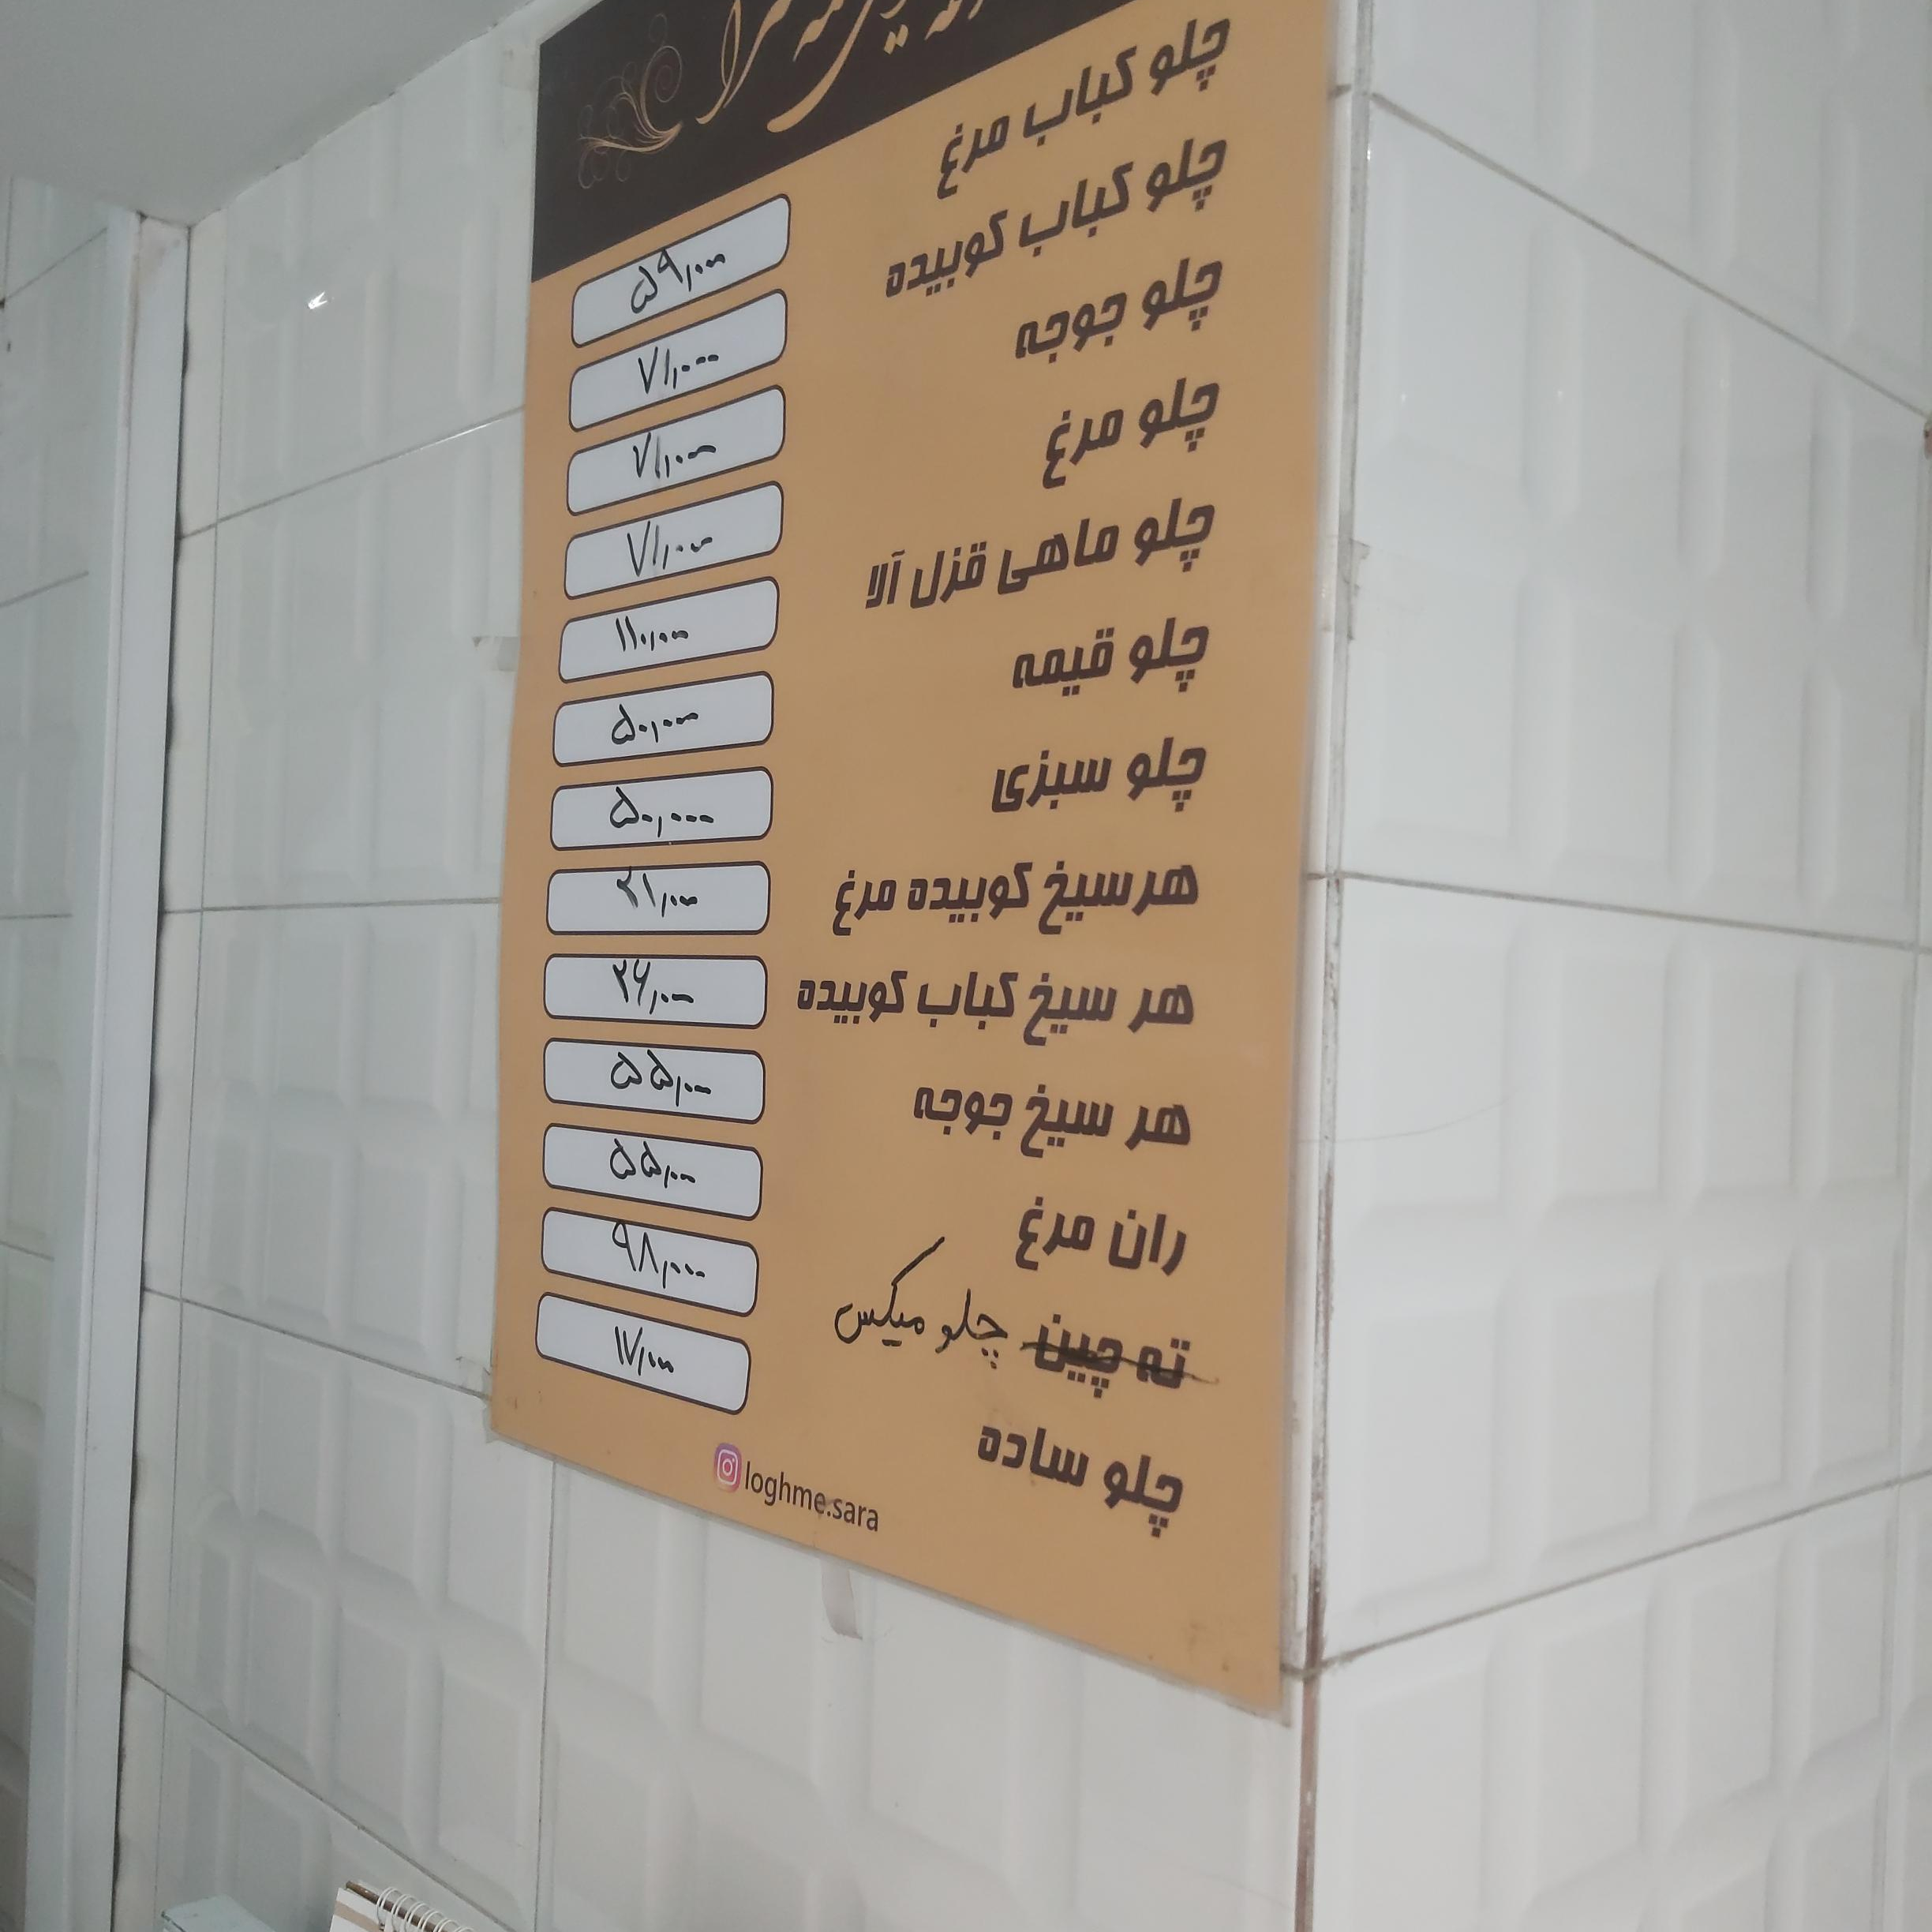 چلو کباب مرغ ۵۹,۰۰۰
چلو کباب کوبیده ۷۱,۰۰۰
چلو جوجه ۷۱,۰۰۰
چلو مرغ ۷۱,۰۰۰
چلو ماهی قزل آلا ۱۱۰,۰۰۰
چلو قیمه ۵۰,۰۰۰
چلو سبزی ۵۰,۰۰۰
هرسیخ کوبیده مرغ ۲۱,۰۰۰
هر سیخ کباب کوبیده ۲۶,۰۰۰
هر سیخ جوجه ۵۵,۰۰۰
ران مرغ ۵۵,۰۰۰
ته چین چلو میکس ۹۸,۰۰۰
چلو ساده ۱۷,۰۰۰
loghme.sara